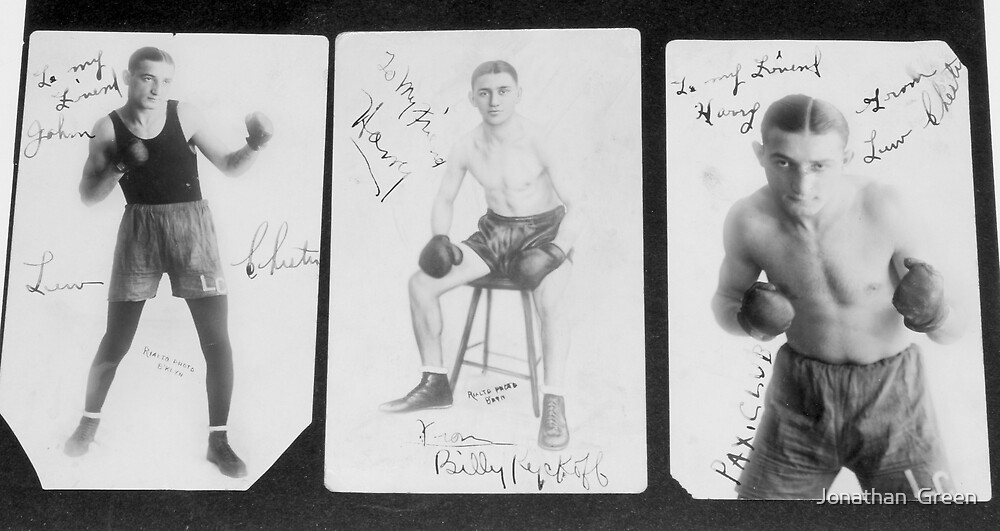 To my
Friend
John
Lew Chester
LC
RIALTO PHOTO
B'KLYN
To My Friend
Harry
RIALTO PHOTO
B'KYN
From
Billy
To my Friend
Harry
From
Lew Chester
PAXIS CLUB
LC
Jonathan Green